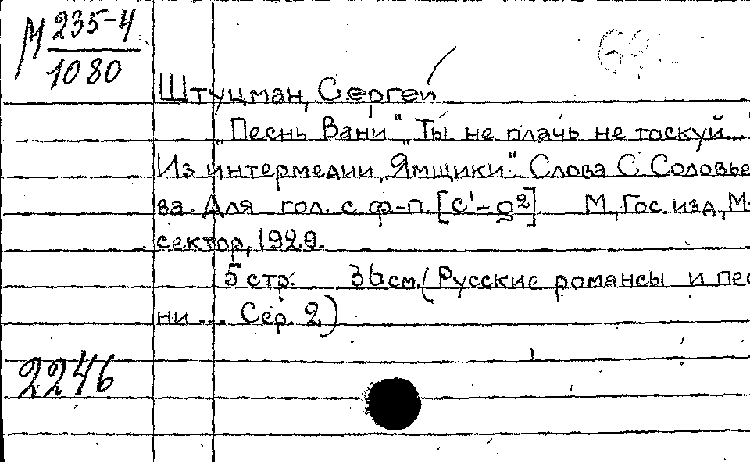 М 235-4
1080
Штуцман, Сергей
„Песнь Вани“ „Ты не плачь не тоскуй...“
Из интермедии „Ямщики“. Слова С. Соловье
ва. Для гол. с ф-п. [c¹-g²] М., Гос. изд., М.
сектор, 1929.
5 стр. 36 см. (Русские романсы и пес
ни ... Сер. 2)
2246